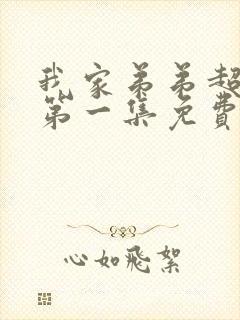 我家弟弟超
第一集免费
心如飛絮